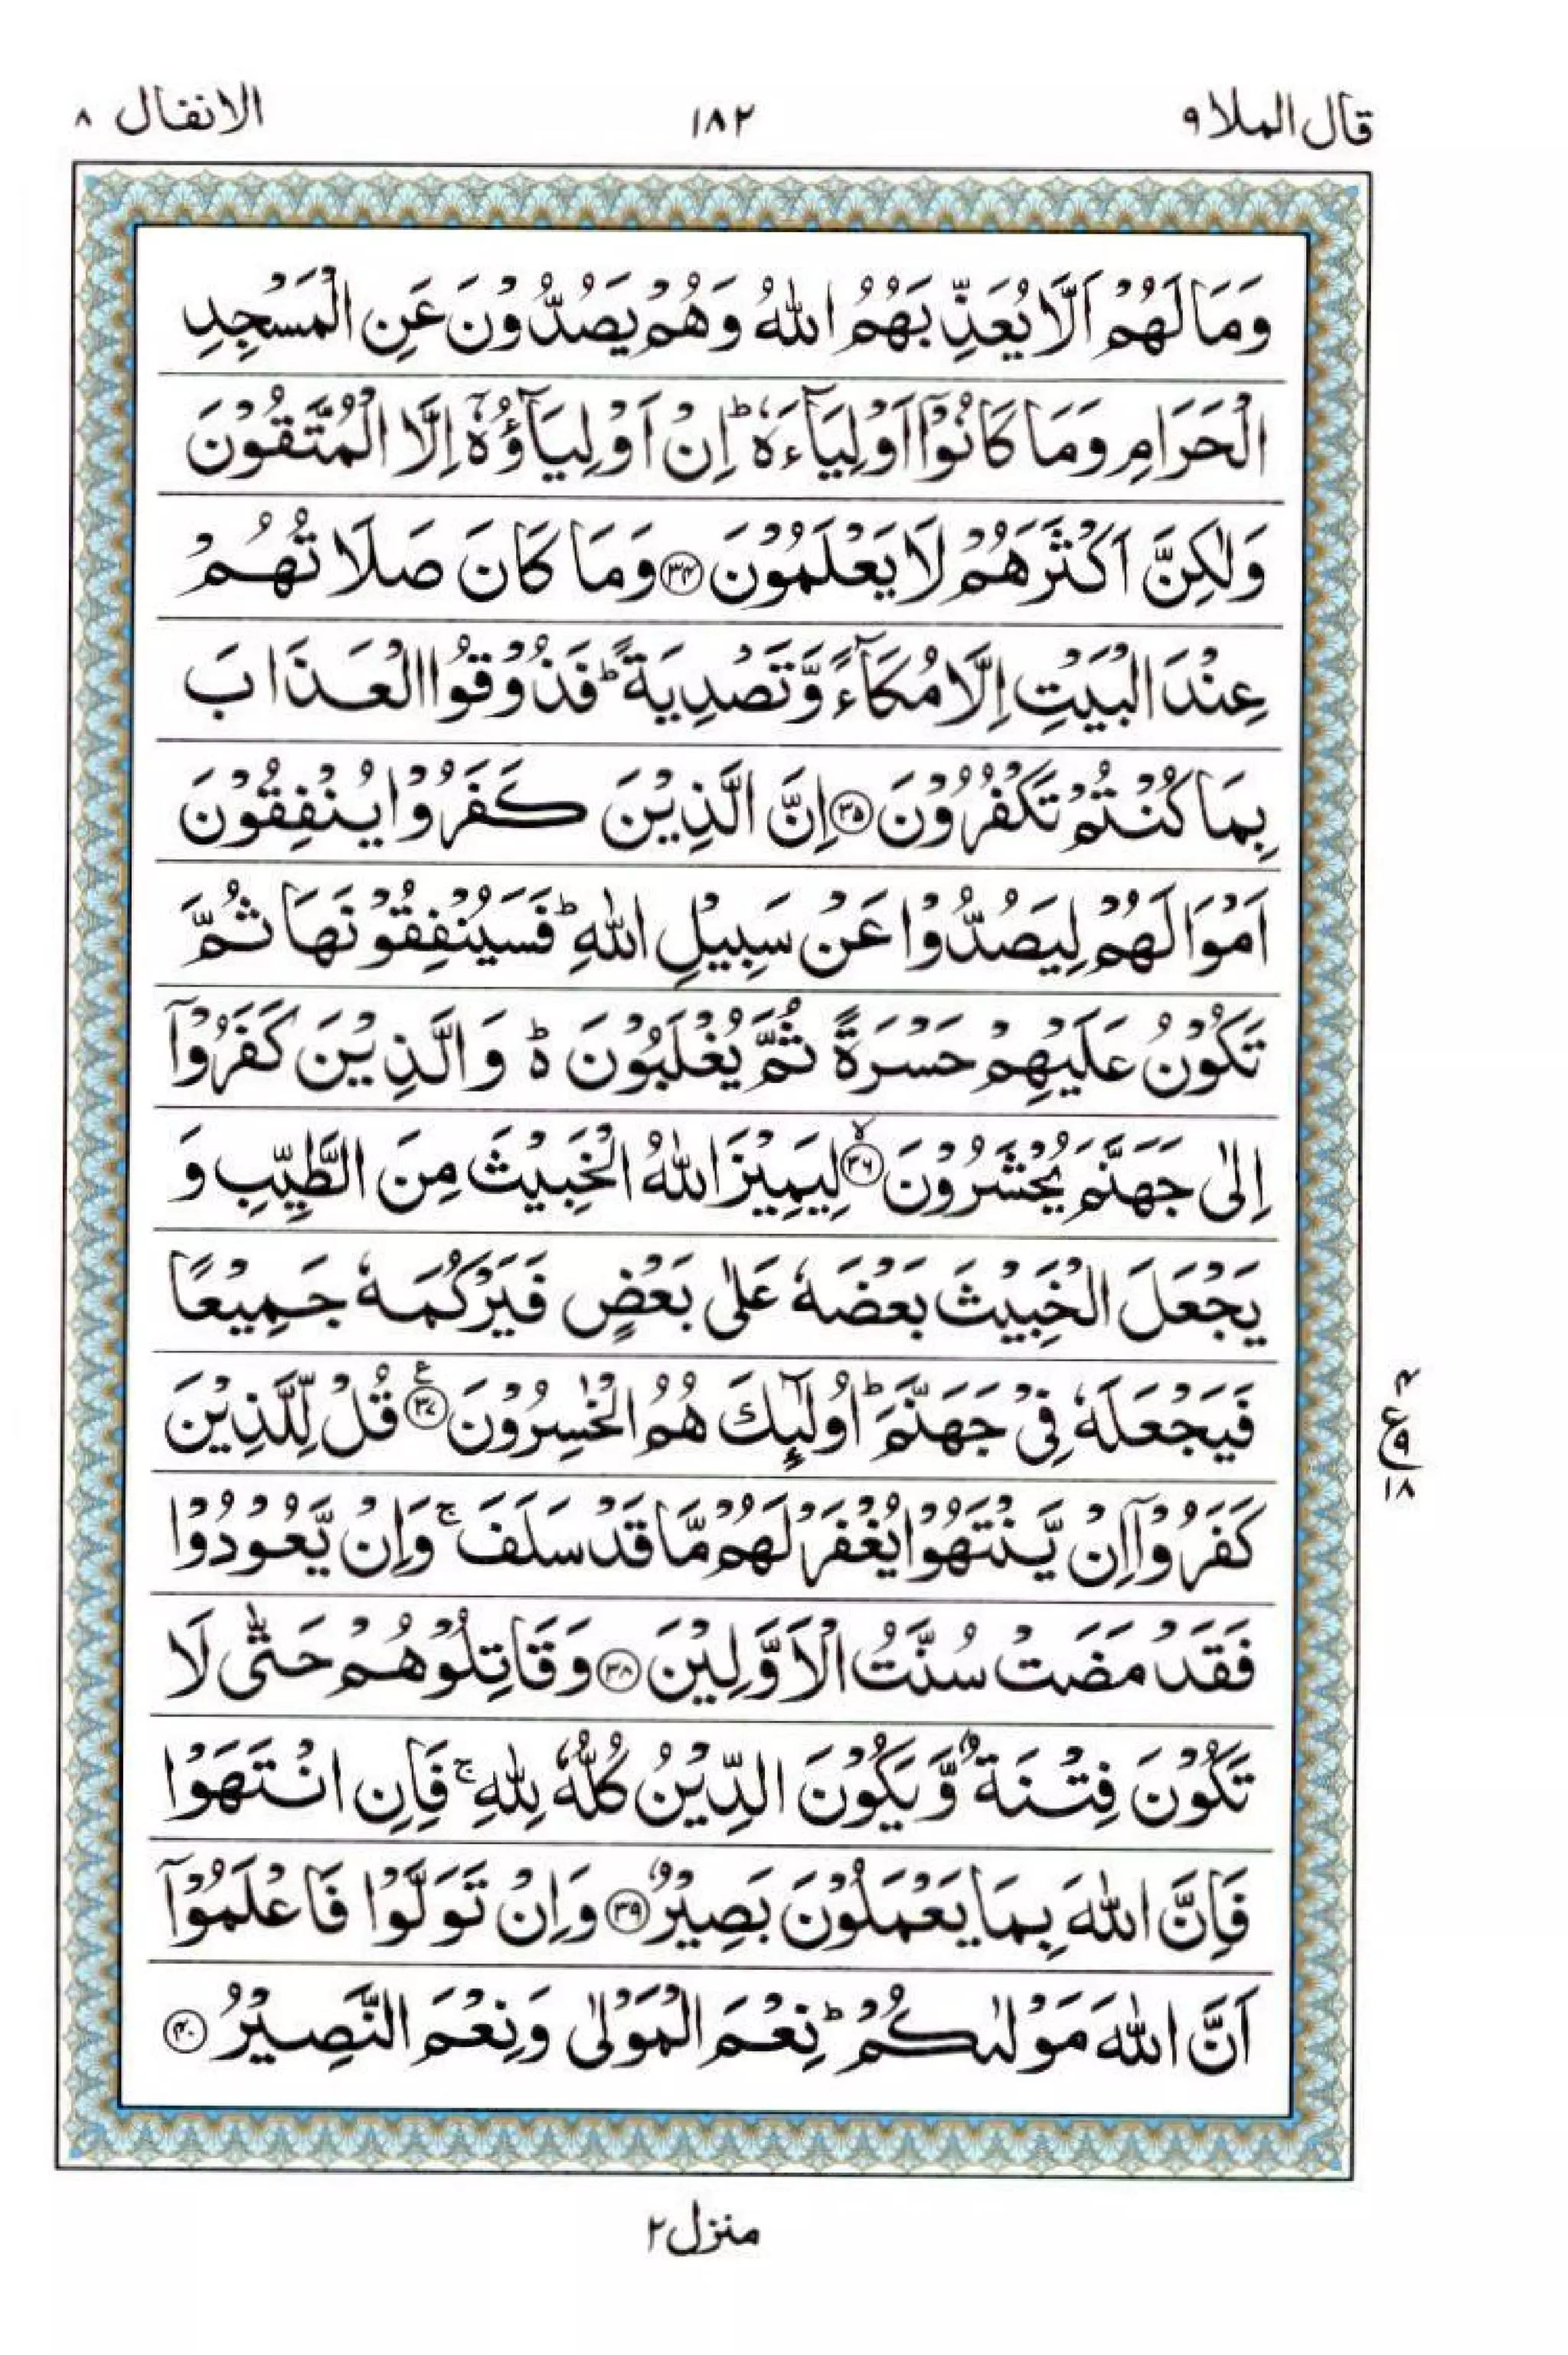 قال الملا ٩ ١٨٢ الانفال ٨
وَمَا لَهُمْ اَلَّا يُعَذِّبَهُمُ اللّٰهُ وَهُمْ يَصُدُّوْنَ عَنِ الْمَسْجِدِ
الْحَرَامِ وَمَا كَانُوْۤا اَوْلِيَآءَهٗ ؕ اِنْ اَوْلِيَآؤُهٗۤ اِلَّا الْمُتَّقُوْنَ
وَلٰكِنَّ اَكْثَرَهُمْ لَا يَعْلَمُوْنَ ﴿۳۴﴾ وَمَا كَانَ صَلَاتُهُمْ
عِنْدَ الْبَيْتِ اِلَّا مُكَآءً وَّتَصْدِيَةً ؕ فَذُوْقُوا الْعَذَابَ
بِمَا كُنْتُمْ تَكْفُرُوْنَ ﴿۳۵﴾ اِنَّ الَّذِيْنَ كَفَرُوْا يُنْفِقُوْنَ
اَمْوَالَهُمْ لِيَصُدُّوْا عَنْ سَبِيْلِ اللّٰهِ ؕ فَسَيُنْفِقُوْنَهَا ثُمَّ
تَكُوْنُ عَلَيْهِمْ حَسْرَةً ثُمَّ يُغْلَبُوْنَ ۬ؕ وَالَّذِيْنَ كَفَرُوْۤا
اِلٰى جَهَنَّمَ يُحْشَرُوْنَ ﴿۳۶﴾ۙ لِيَمِيْزَ اللّٰهُ الْخَبِيْثَ مِنَ الطَّيِّبِ وَ
يَجْعَلَ الْخَبِيْثَ بَعْضَهٗ عَلٰى بَعْضٍ فَيَرْكُمَهٗ جَمِيْعًا
فَيَجْعَلَهٗ فِيْ جَهَنَّمَ ؕ اُولٰٓئِكَ هُمُ الْخٰسِرُوْنَ ﴿۳۷﴾ ع قُلْ لِّلَّذِيْنَ
كَفَرُوْۤا اِنْ يَّنْتَهُوْا يُغْفَرْ لَهُمْ مَّا قَدْ سَلَفَ ۚ وَاِنْ يَّعُوْدُوْا
فَقَدْ مَضَتْ سُنَّتُ الْاَوَّلِيْنَ ﴿۳۸﴾ وَقَاتِلُوْهُمْ حَتّٰى لَا
تَكُوْنَ فِتْنَةٌ وَّيَكُوْنَ الدِّيْنُ كُلُّهٗ لِلّٰهِ ۚ فَاِنِ انْتَهَوْا
فَاِنَّ اللّٰهَ بِمَا يَعْمَلُوْنَ بَصِيْرٌ ﴿۳۹﴾ وَاِنْ تَوَلَّوْا فَاعْلَمُوْۤا
اَنَّ اللّٰهَ مَوْلٰىكُمْ ؕ نِعْمَ الْمَوْلٰى وَنِعْمَ النَّصِيْرُ ﴿۴۰﴾
۴
ع ٩
١٨
منزل ٢